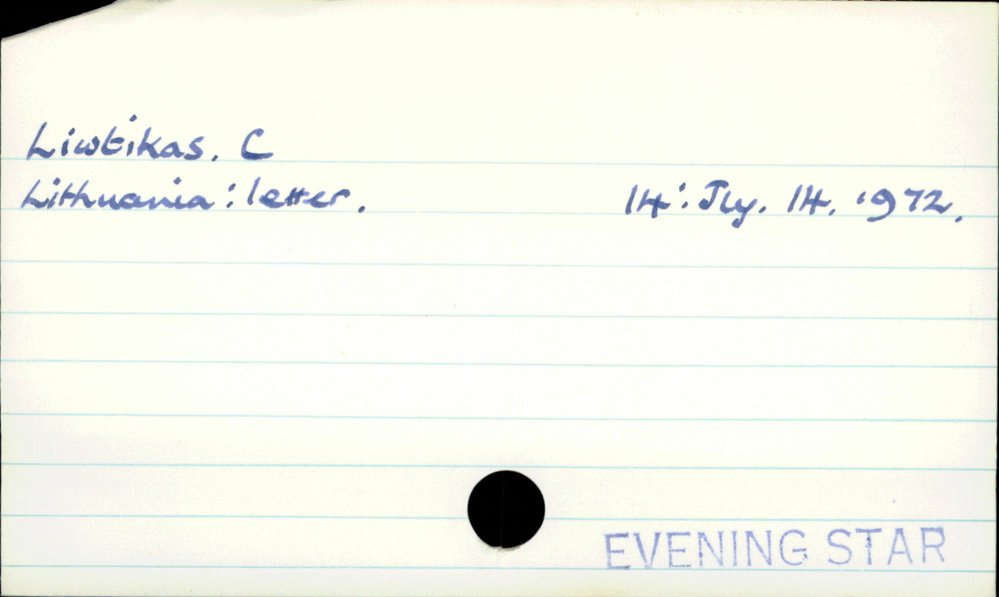 Liwtikas. C
Lithuania: letter. 14: Jly. 14. 1972.
EVENING STAR